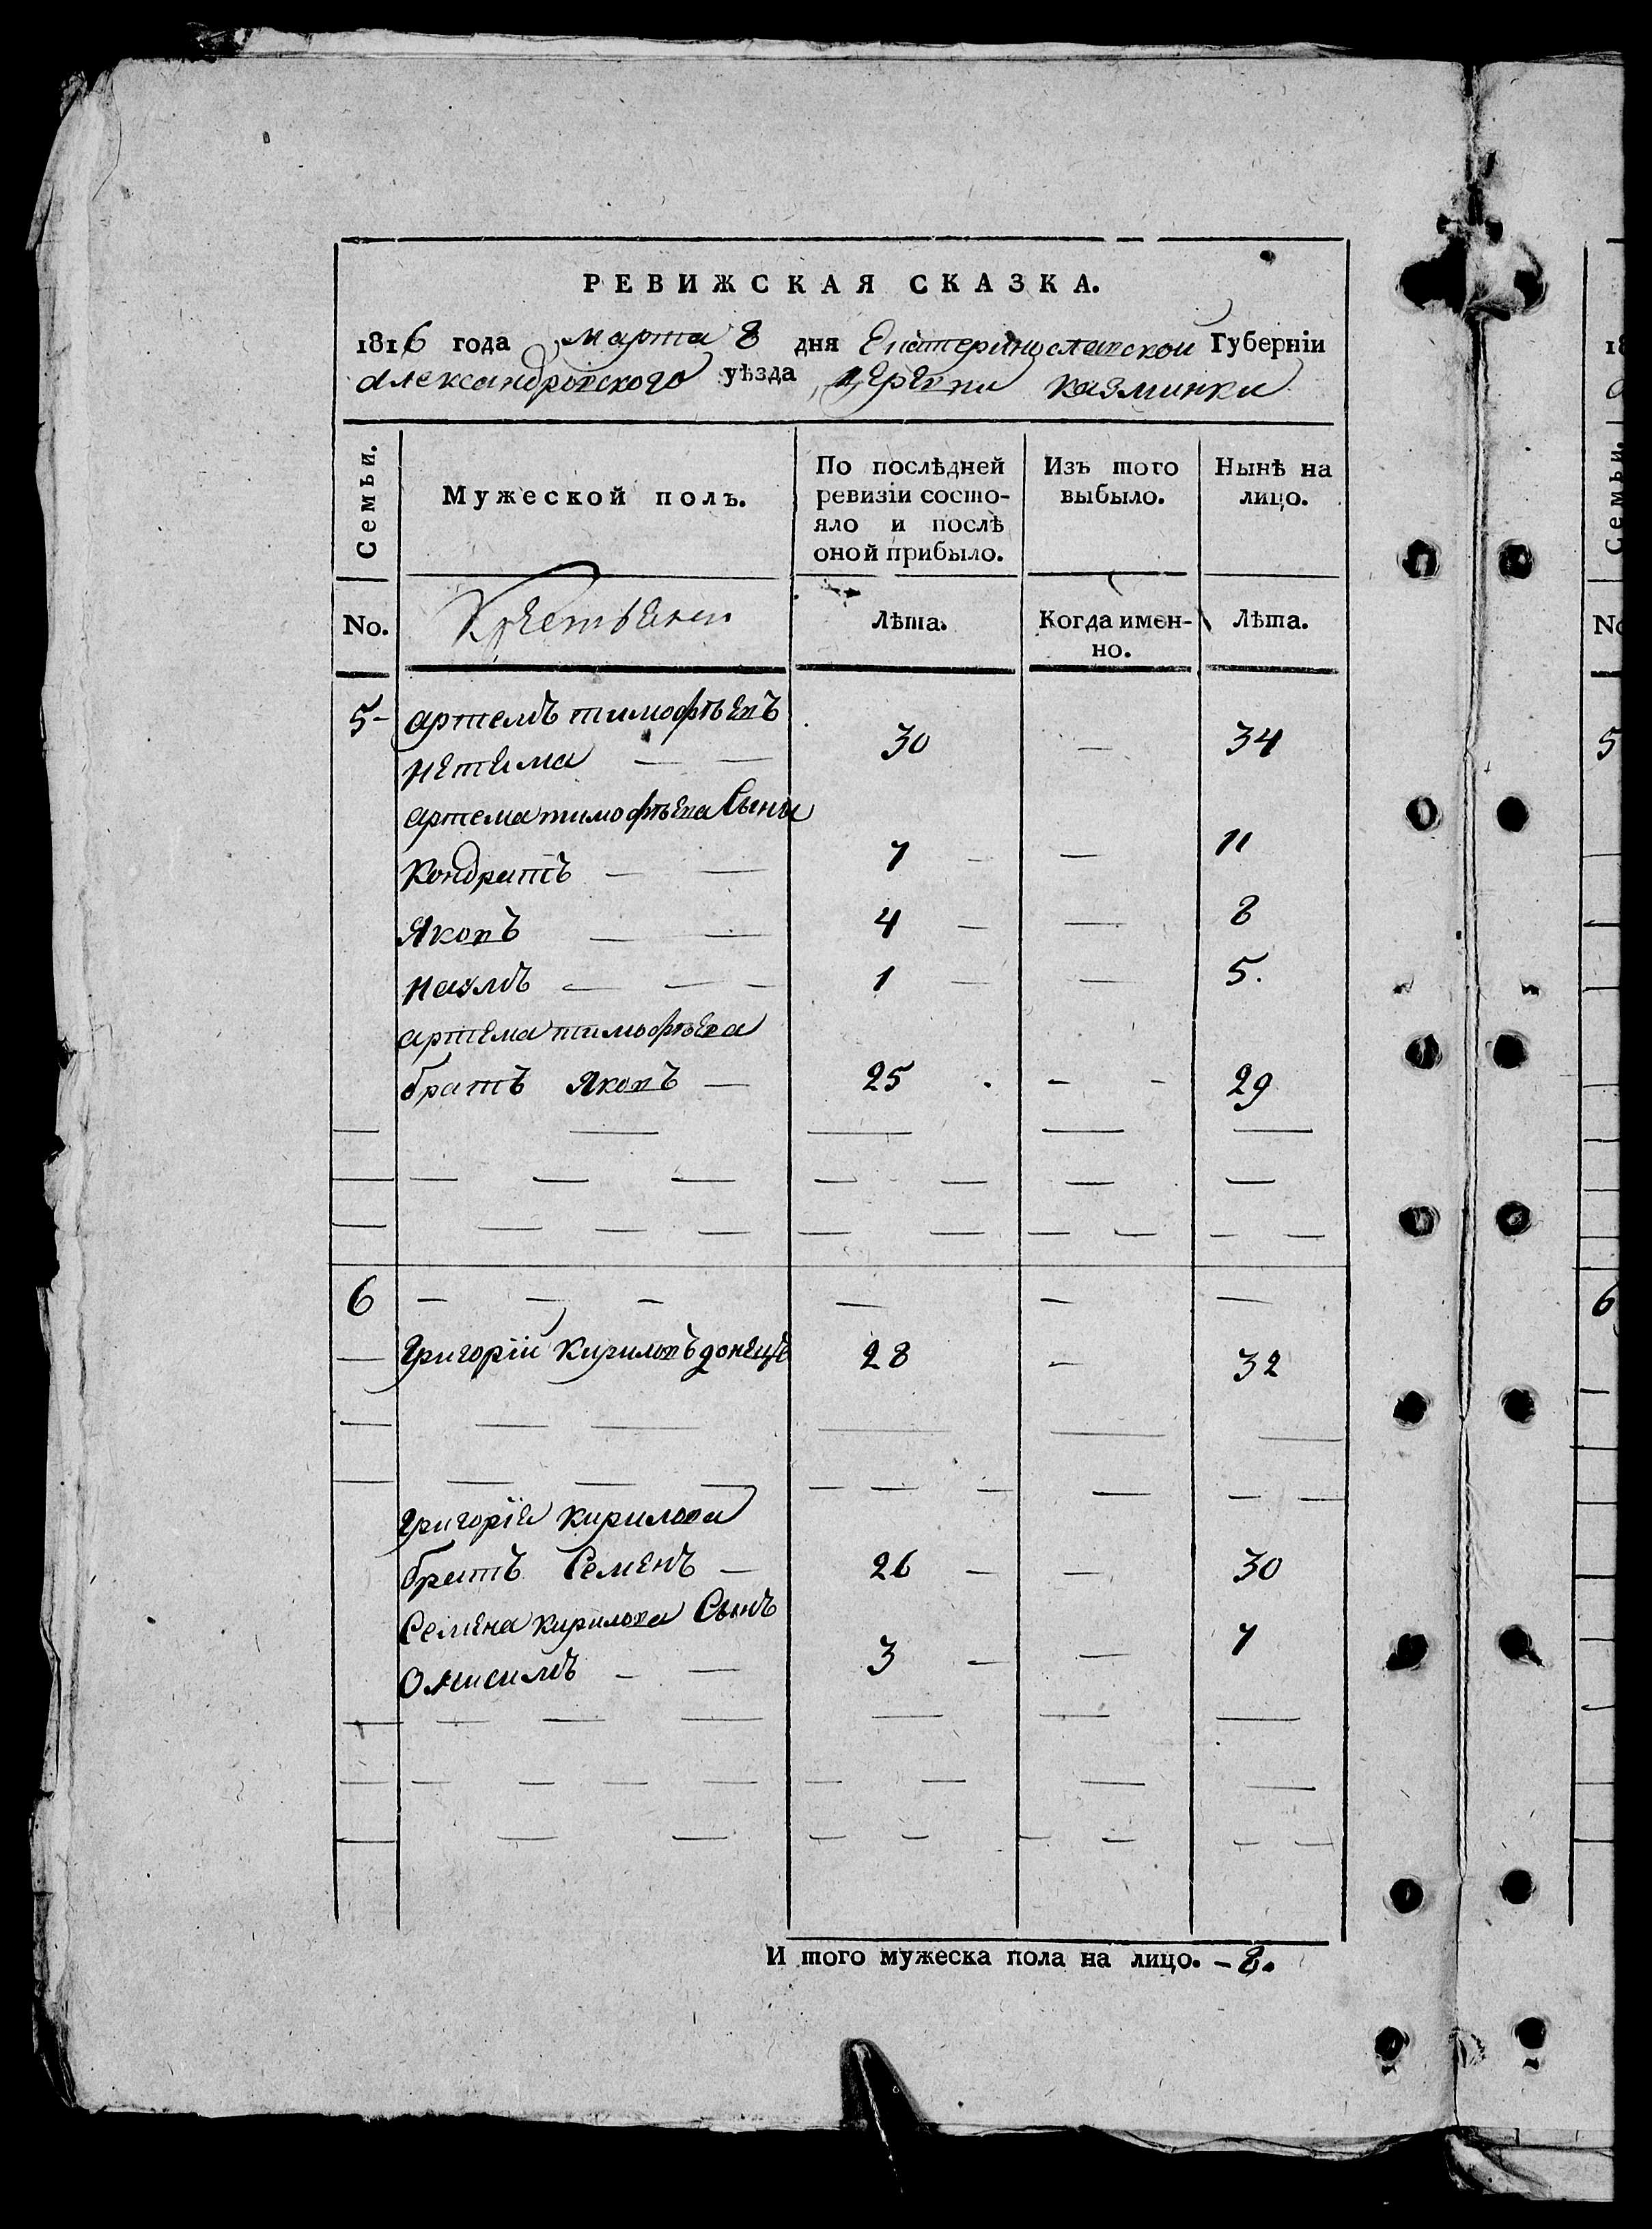 РЕВИЖСКАЯ СКАЗКА.
1816 года марта 8 дня Екатеринославской Губерніи
александровского уѣзда деревни казминки
Семьи.
Мужеской полъ.
По послѣдней ревизіи состо-
яло и послѣ
оной прибыло.
Изъ того
выбыло.
Нынѣ на
лицо.
No.
Лѣта.
Когда имен-
но.
Лѣта.
5 - артемъ тимофѣевъ
30 — 34
артема тимофѣева Сыны
Кондратъ — — 7 — — 11
Яковъ — — 4 — — 8
наумъ — — — 1 — — 5.
артема тимофѣева
братъ Яковъ — 25 . - - 29
6
григоріи Кириловъ донецъ 28 — 32
григорія кирилова
братъ Семенъ — 26 — — 30
Семена кирилова Сынъ
Онисимъ — — 3 — — 7
И того мужеска пола на лицо. - 8.
1816
Семьи.
No
5
6